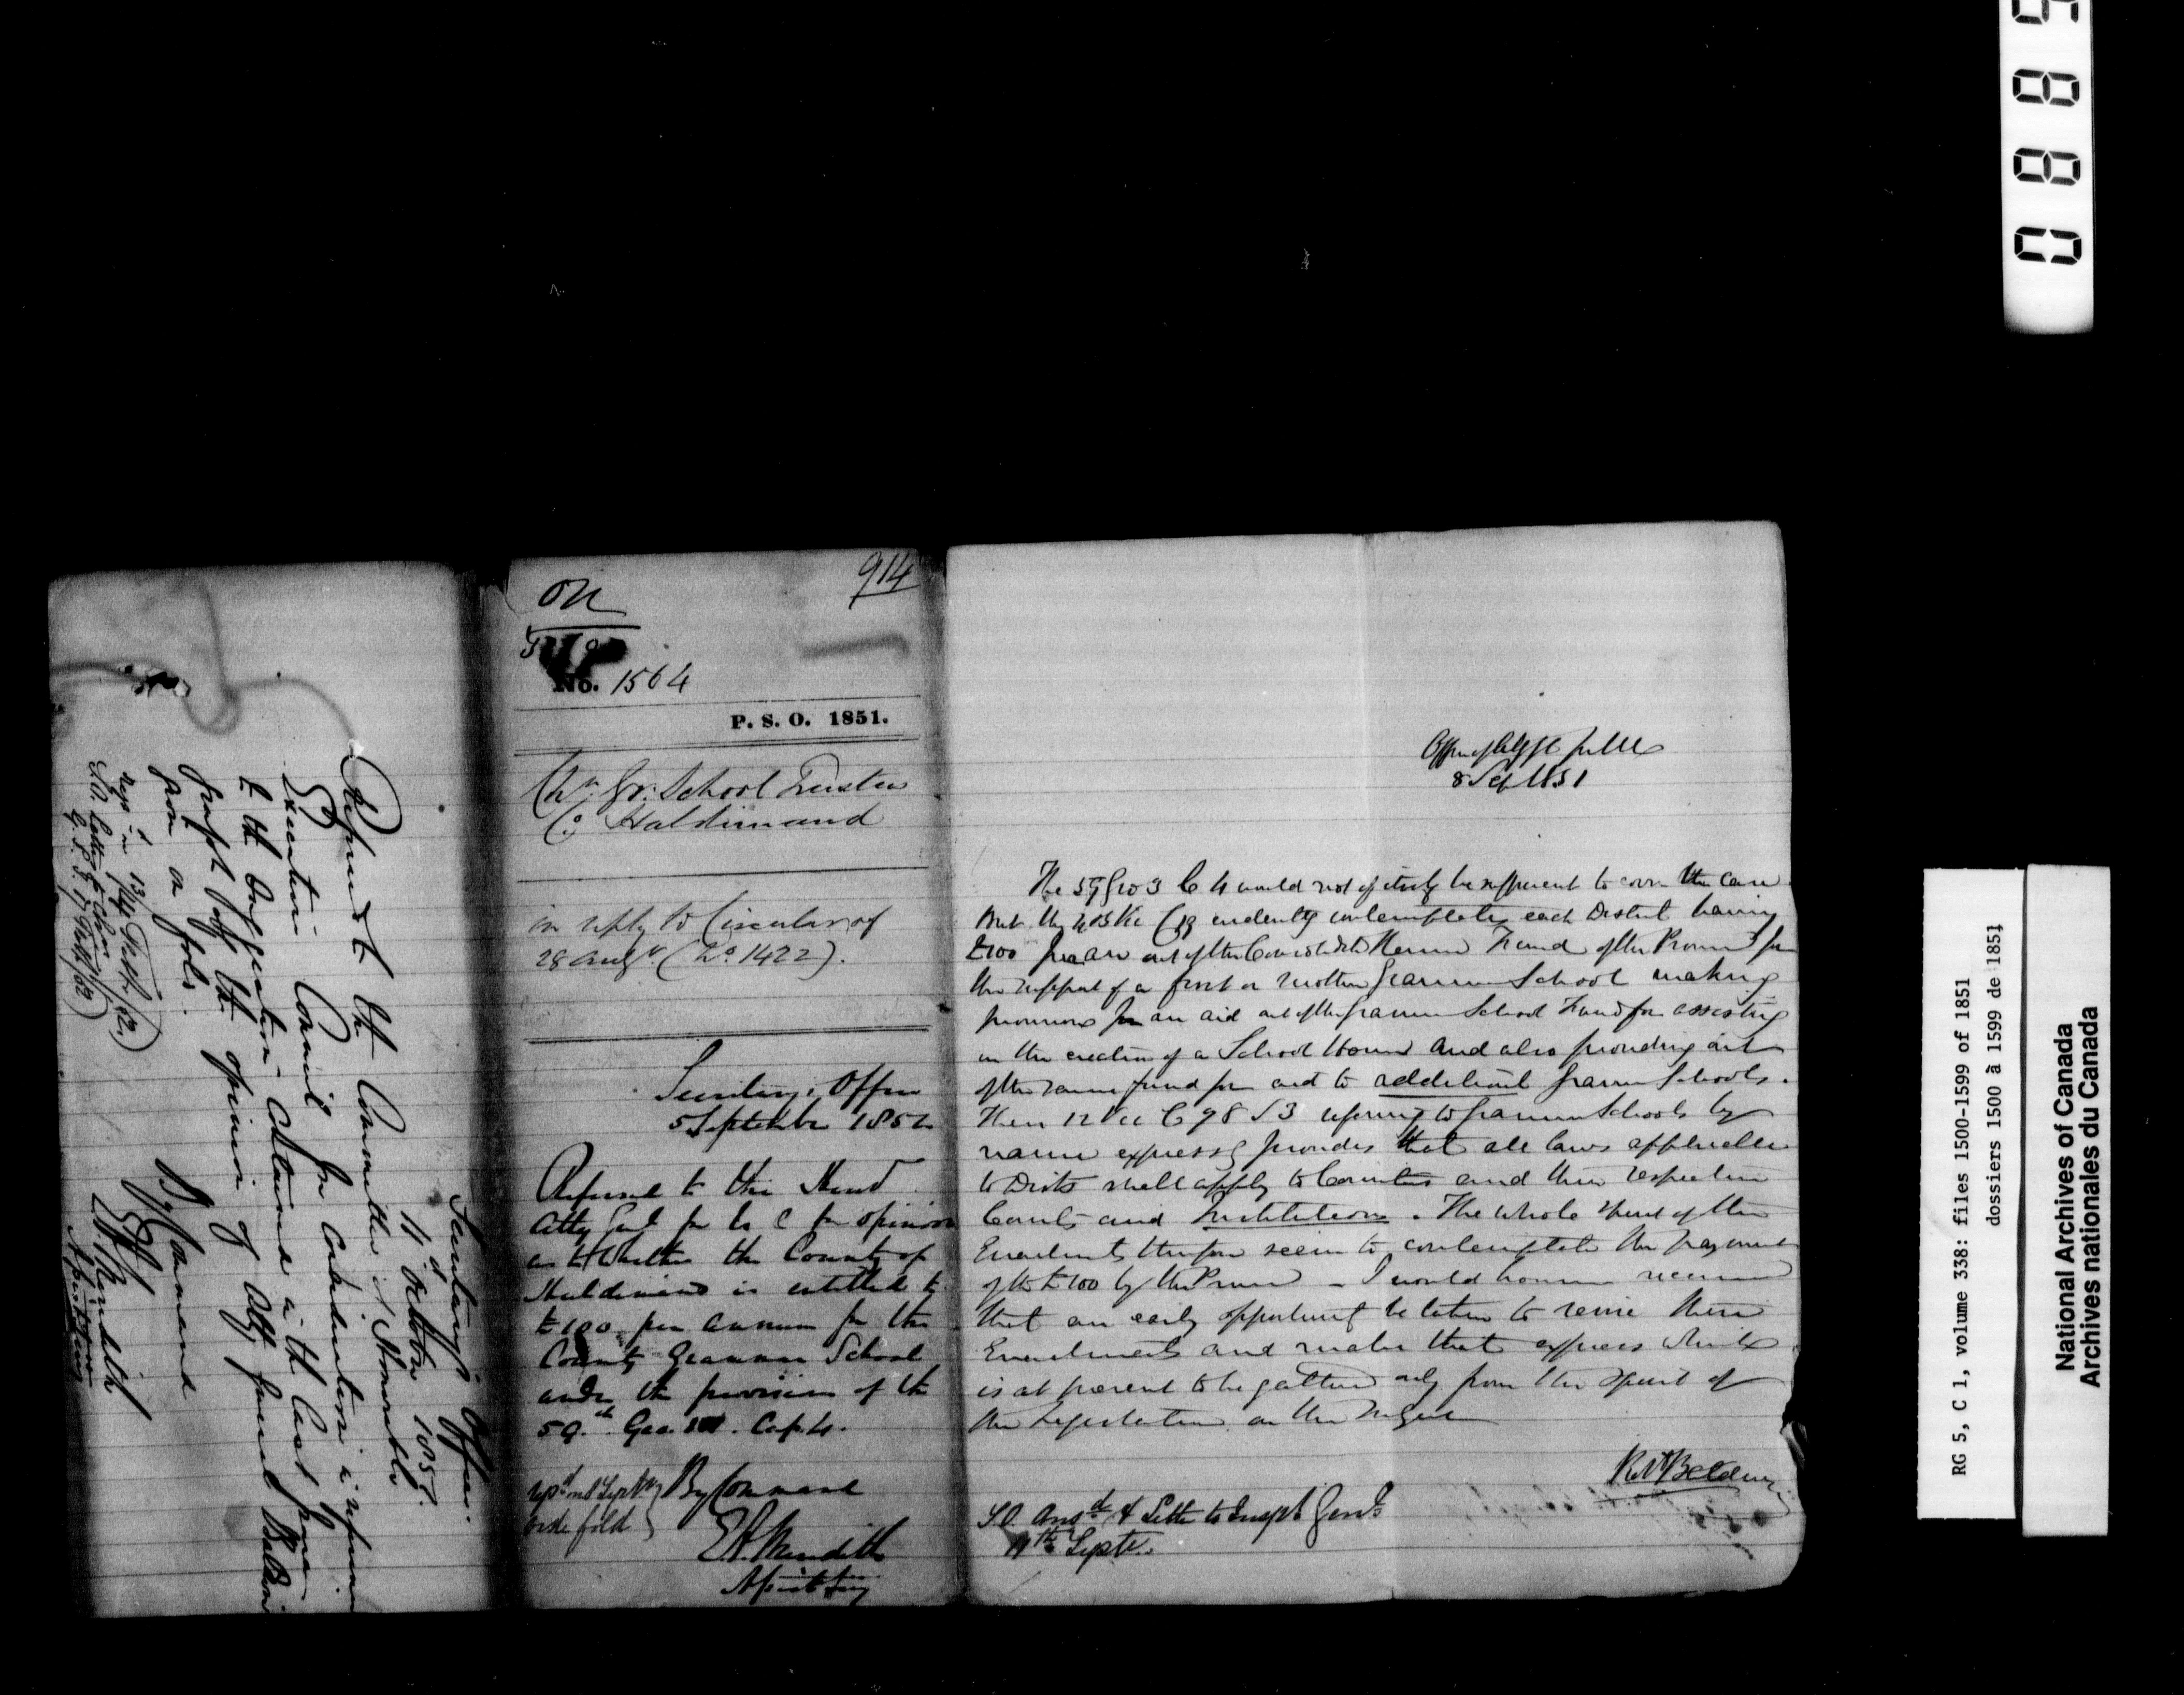 Secretary's Office
11th October 185
Referred to the Committee of Honorable
Executive Council for consideration in reference
to the suggestion contained in the last para
graph of the opinion of Atty General Baldwin
hereon on folio.
By Command
E A Meredith
Assist Secy
S.O. Letter to Chm
ON
914
No. 1564
P. S. O. 1851.
Chn. Gr. School Trustees
Co. Haldimand
in reply to Circular of
28 Augt. (No. 1422).
Secretary's Office
5 September 185
Referred to the Hond
Atty Genl for U C for opinion
as to Whether the County of
Haldimand is entitled to
£100 per annum for the
County Grammar School
under the provision of the
59th Geo. III. Cap. 4.
By Command
E.A. Meredith
Assist Secy
Office of Atty Gl for UC
8 Sept 1851
The 59 Geo 3 C 4 would not of itself be sufficient to cover the case
But the 4 & 5 Vic C 19 evidently contemplates each District having
£100 per ann out of the Consolidated Revenue Fund of the Province for
the support of a first or mother Grammar School making
provisions for an aid out of the Grammar School Fund for assisting
in the erection of a School House and also providing out
of the same fund for aid to additional Grammar Schools.
Then 12 Vic C 78 S 3 referring to Grammar Schools by
name expressly provides that all laws applicable
to Dists shall apply to Counties and their respective
Courts and Institutions. The whole spirit of the
Enactments therefore seem to contemplate the payment
of the £100 by the Province - I would however recommend
that an early opportunity be taken to revise these
Enactments and make that express which
is at present to be gathered only from the spirit of
the Legislation on the subject
Rt Baldwin
S.O. Ansd & Letter to Inspr Genl
11th Septr.
0885
RG 5, C 1, volume 338: files 1500-1599 of 1851
dossiers 1500 à 1599 de 1851
National Archives of Canada
Archives nationales du Canada